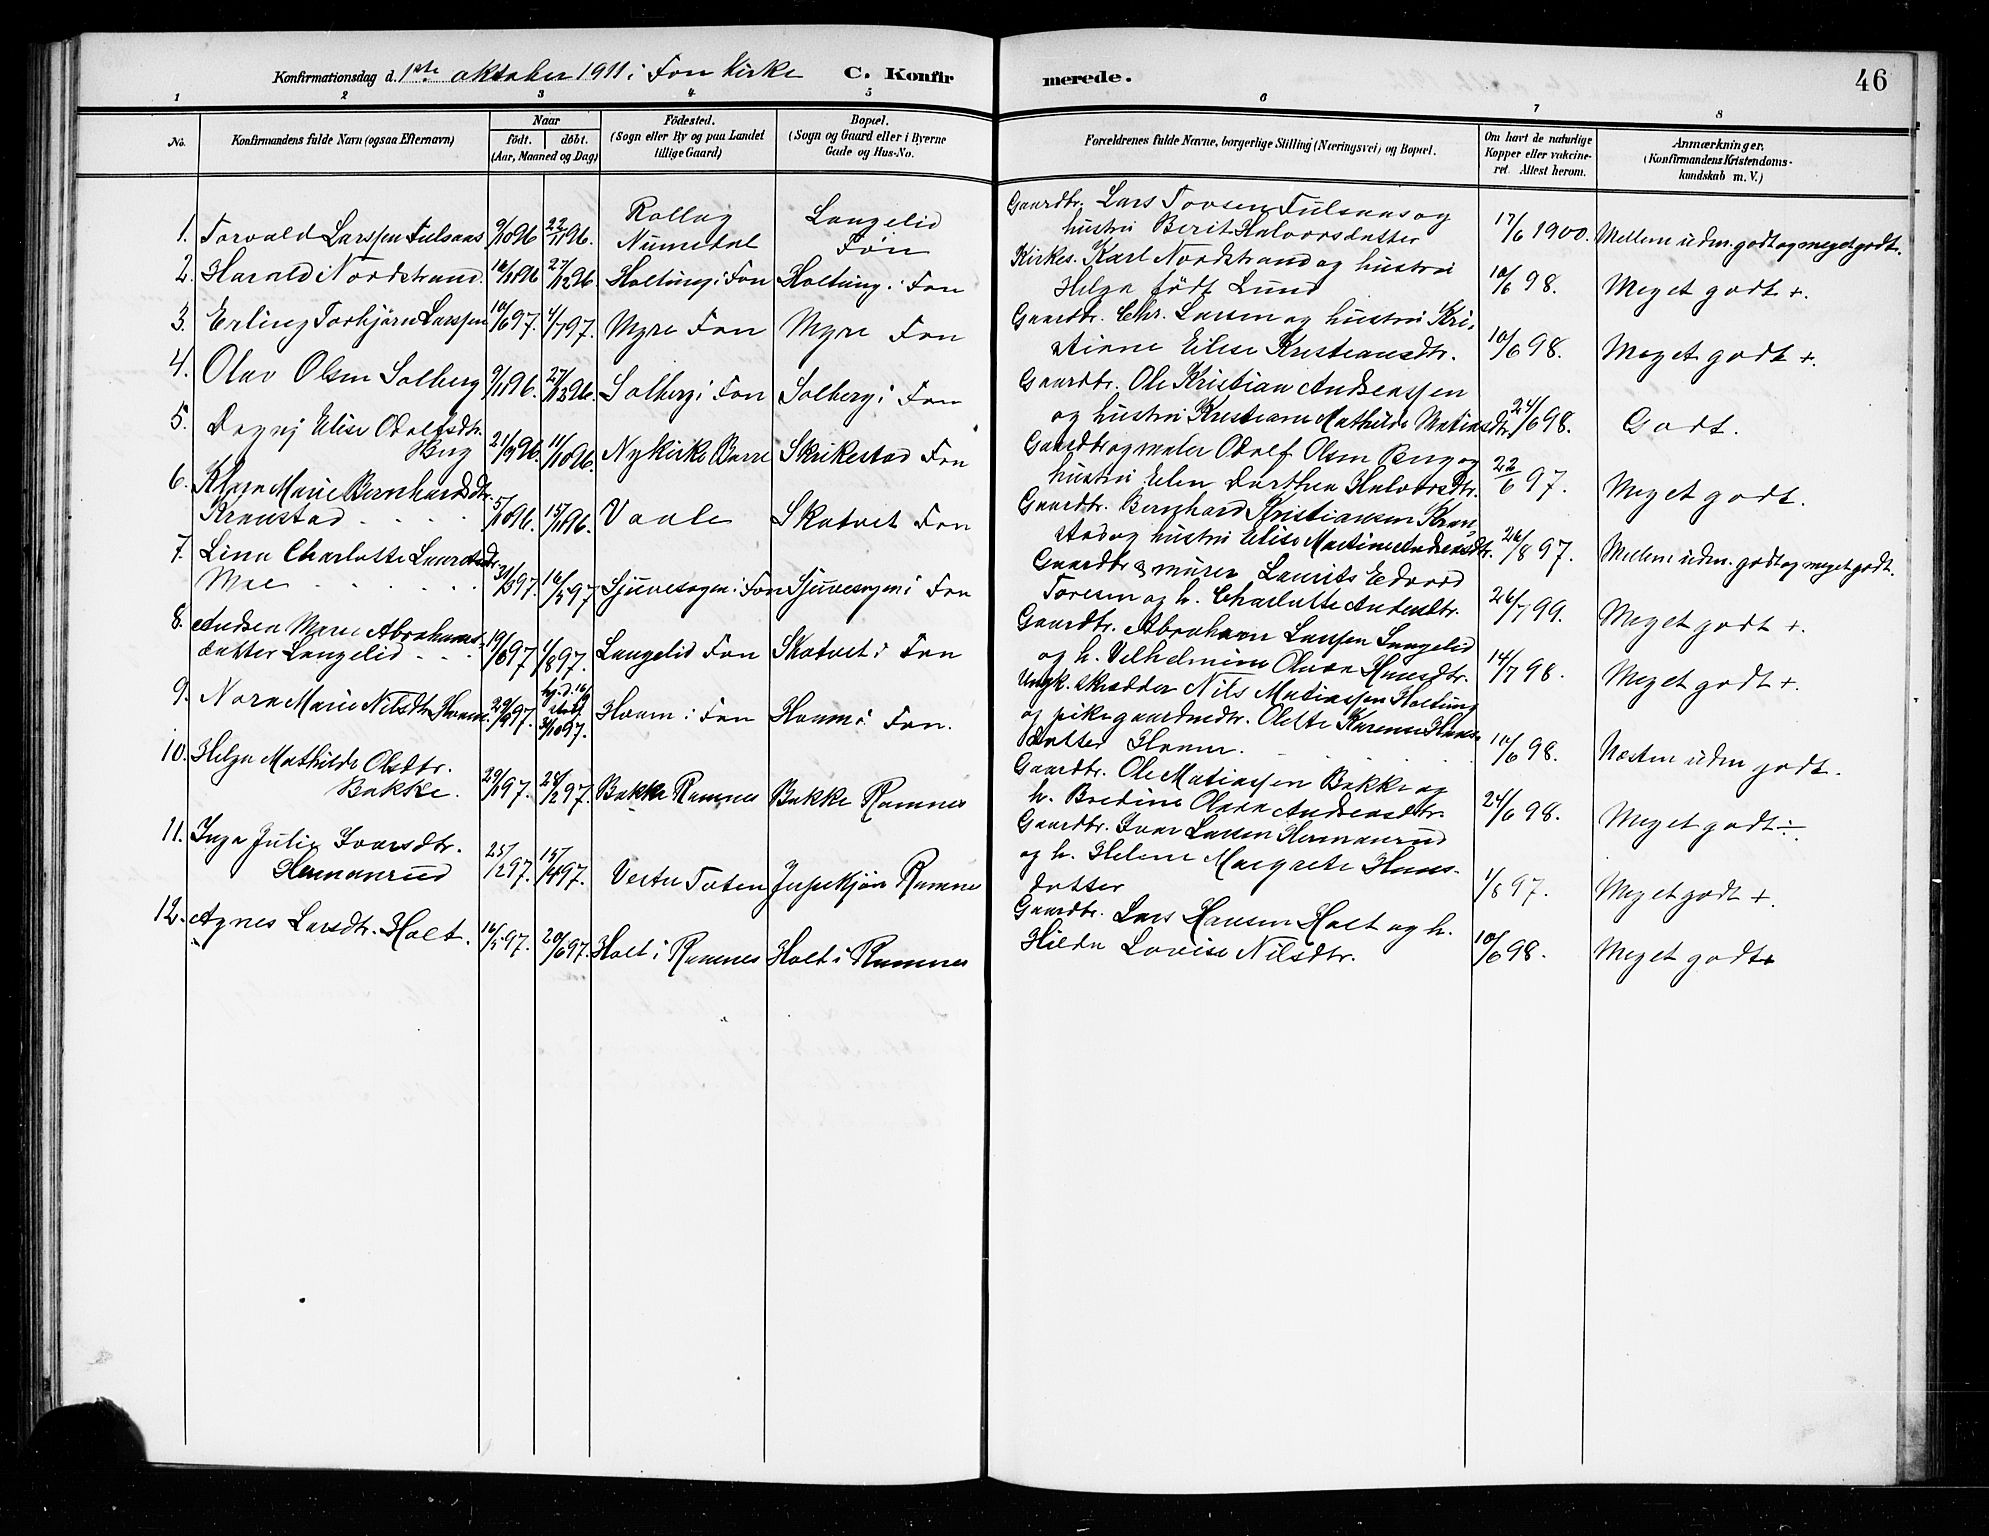 Konfirmationsdag d. 1ste oktober 1911 i Fon Kirke C. Konfirmerede. 46
1 2 3 4 5 6 7 8
No.
Konfirmandens fulde Navn (ogsaa Efternavn)
Naar
født. døbt.
(Aar, Maaned og Dag)
Fødested.
(Sogn eller By og paa Landet
tillige Gaard)
Bopæl.
(Sogn og Gaard eller i Byerne
Gade og Hus-No.
Forældrenes fulde Navne, borgerlige Stilling (Næringsvei) og Bopæl.
Om havt de naturlige
Kopper eller vakcine-
ret. Attest herom.
Anmærkninger.
(Konfirmandens Kristendoms-
kundskab m. V.)
1. Torvald Larssen Fulsaas 9/10 96 22/11 96. Rollag Numedal Langelid Fon Gaardbr. Lars Tovsen Fulsaas og
hustru Berit Halvorsdatter 17/6 1900. Mellem uden. godt og meget godt.
2. Harald Nordstrand. 16/11 96 27/12 96. Holtung i Fon Holtung i Fon Kirkes. Karl Nordstrand og hustru
Helga født Lund 10/6 98. Meget godt +.
3. Erling Torbjørn Larssen 10/6 97. 4/7 97. Myre Fon Myre Fon Gaardbr. Chr. Larsen og hustru Kri-
stiane Elise Kristiansdtr. 10/6 98. Meget godt +.
4. Olav Olsen Solberg 9/11 96. 27/12 96. Solberg i Fon Solberg i Fon Gaardbr. Ole Kristian Andreassen
og hustru Kristiane Mathilde Matiasdtr. 24/6 98. Godt.
5. Dagny Elise Odolfsdtr.
Berg 21/8 96. 11/10 96. Nykirke Borre Skrikestad Fon Gaardbr og maler Odolf Olsen Berg og
hustru Elen Dorthea Halvorsdtr. 22/6 97. Meget godt.
6. Klara Marie Bernhardsdtr.
Kraustad . . . 5/10 96. 15/11 96. Vaale Skatvet Fon Gaardbr. Bernhard Kristiansen Krau
stad og hustru Elise Martine Andreasdtr. 26/8 97. Mellem uden. godt og meget godt.
7. Lina Charlotte Lauritsdtr.
Moe . . . 31/3 97. 16/5 97 Sjuvesogen i Fon Sjuvesogen i Fon Gaardbr & murer Laurits Edvard
Toresen og h. Charlotte Andersdtr. 26/7 99. Meget godt +.
8. Andsea Marie Abrahams-
datter Langelid . . . 19/6 97 1/8 97. Langelid Fon Skatvet i Fon Gaardbr. Abraham Larsen Langelid
og h. Vilhelmine Olava Hansdtr. 14/7 98. Meget godt +.
9. Nora Marie Nilsdtr Hvam. 29/8 97. hj.d. 16/9 stadf. 31/10 97. Hvam i Fon Hvam i Fon. Ungk. skrædder Nils Matiassen Holtung
og pike gaardmdtr. Olette Karense Hans-
datter Hvam. 10/6 98. Næsten uden godt.
10. Helga Mathilde Olsdtr.
Bakke. 29/1 97. 28/2 97. Bakke Ramnes Bakke Ramnes Gaardbr. Ole Matiassen Bakke og
h. Bredine Olava Andreasdtr. 24/6 98. Meget godt ÷
11. Inga Julie Ivarsdtr.
Hermanrud 25/2 97. 15/4 97. Vestre Toten Jupekjøn Ramne Gaardbr. Ivar Larsen Hermanrud
og h. Helene Margrete Hans-
datter 1/8 97. Meget godt +.
12. Agnes Larsdtr. Holt. 16/5 97. 20/6 97. Holt i Ramnes Holt i Ramnes Gaardbr. Lars Hansen Holt og h.
Hilda Lovise Nilsdtr. 10/6 98. Meget godt +